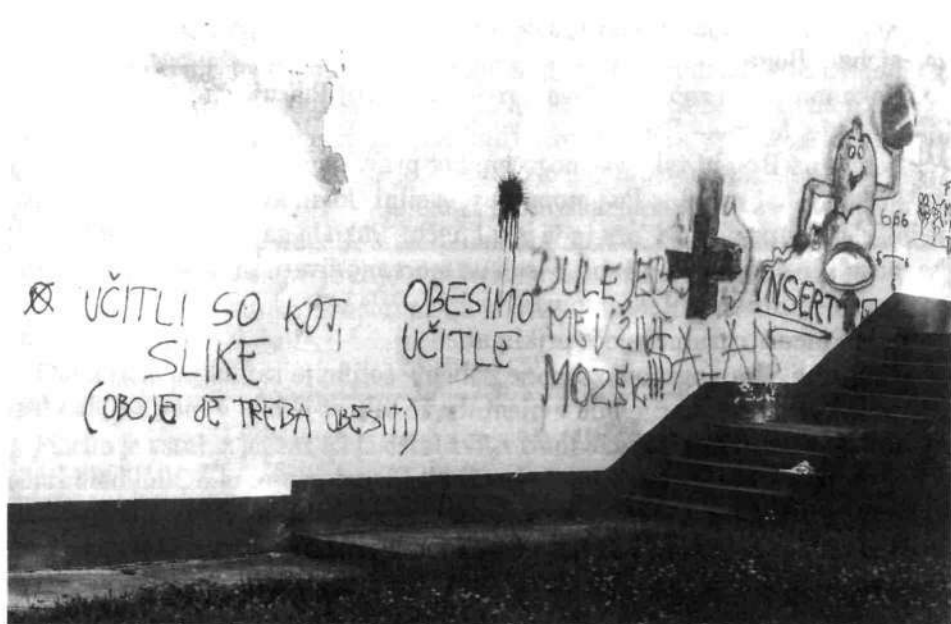 UČITLI SO KOT
SLIKE
(OBOJE JE TREBA OBESITI)
OBESIMO
UČITLE
DULE JEBE
ME V ŽIVE
MOZEK!!!
SATAN
INSERT
666